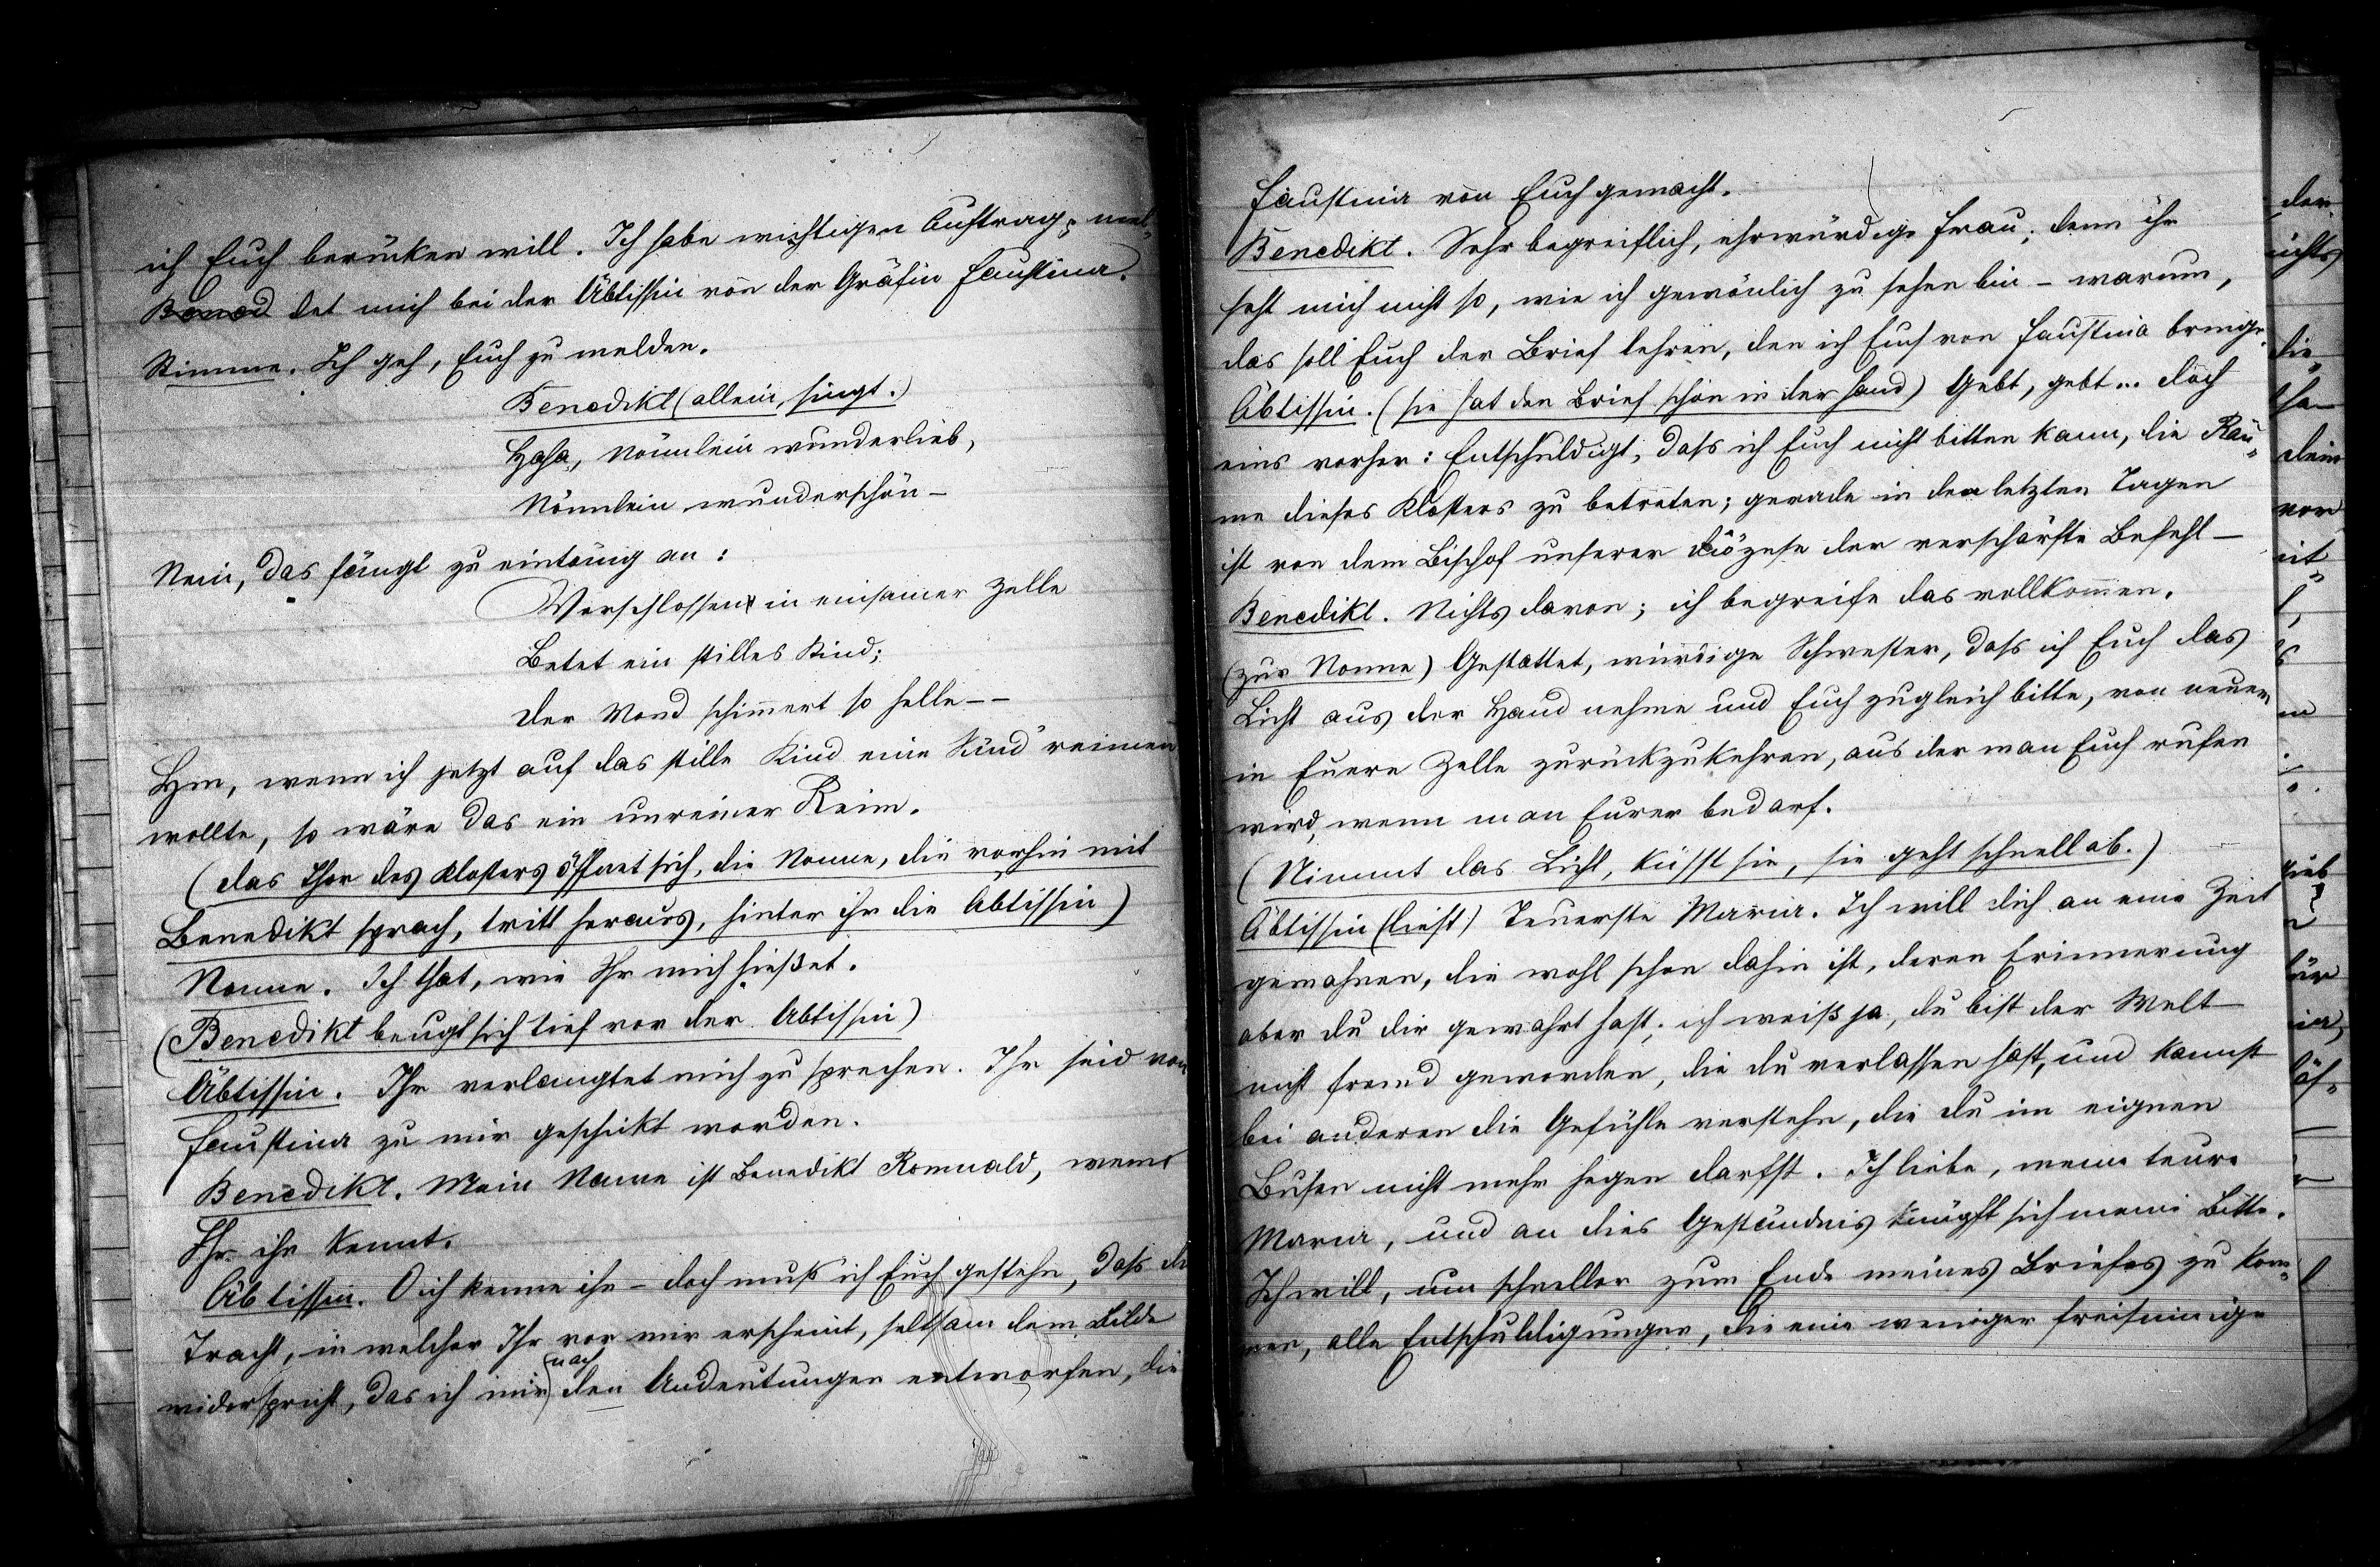 ich Euch berücken will. Ich habe wichtigen Auftrag; mel-
Bened det mich bei der Äbtissin von der Gräfin Faustina.
Stimme. Ich geh, Euch zu melden.
Benedikt (allein, singt.)
Haha, Nönnlein wunderlieb,
Nönnlein wunderschön –
Nein, das fängt zu eintönig an:
Verschlossen in einsamer Zelle
Betet ein stilles Kind;
Der Mond schimmert so helle – –
Hm, wenn ich jetzt auf das stille Kind eine Sünd' reimen
wollte, so wäre das ein unreiner Reim.
(Das Thor des Klosters öffnet sich, die Nonne, die vorhin mit
Benedikt sprach, tritt heraus, hinter ihr die Äbtissin)
Nonne. Ich that, wie Ihr mich hießet.
(Benedikt beugt sich tief vor der Äbtissin)
Äbtissin. Ihr verlangtet mich zu sprechen. Ihr seid von
Faustina zu mir geschickt worden.
Benedikt. Mein Name ist Benedikt Romuald, wenn
Ihr ihn kennt.
Äbtissin. O ich kenne ihn – doch muß ich Euch gestehn, daß die
Tracht, in welcher Ihr vor mir erscheint, seltsam dem Bilde
widerspricht, das ich mir nach den Andeutungen entworfen, die
Faustina von Euch gemacht.
Benedikt. Sehr begreiflich, ehrwürdige Frau; denn ihr
seht mich nicht so, wie ich gewönlich zu sehen bin – warum,
das soll Euch der Brief lehren, den ich Euch von Faustina bringe.
Äbtissin. (sie hat den Brief schon in der Hand) Gebt, gebt... doch
eins vorher: Entschuldigt, daß ich Euch nicht bitten kann, die Räu-
me dieses Klosters zu betreten; gerade in den letzten Tagen
ist von dem Bischof unserer Diözese der verschärfte Befehl –
Benedikt. Nichts davon; ich begreife das vollkommen.
(zur Nonne) Gestattet, würdige Schwester, daß ich Euch das
Licht aus der Hand nehme und Euch zugleich bitte, von neuem
in Euere Zelle zurückzukehren, aus der man Euch rufen
wird, wenn man Eurer bedarf.
(Nimmt das Licht, küsst sie, sie geht schnell ab.)
Äbtissin (liest) Teuerste Maria. Ich will dich an eine Zeit
gemahnen, die wohl schon dahin ist, deren Erinnerung
aber du dir gewahrt hast; ich weiß ja, du bist der Welt
nicht fremd geworden, die du verlassen hast, und kannst
bei anderen die Gefühle verstehn, die du im eignen
Busen nicht mehr hegen darfst. Ich liebe, meine teure
Maria, und an dies Geständnis knüpft sich meine Bitte.
Ich will, um schneller zum Ende meines Briefes zu kom-
men, alle Entschuldigungen, die eine weniger freisinnige